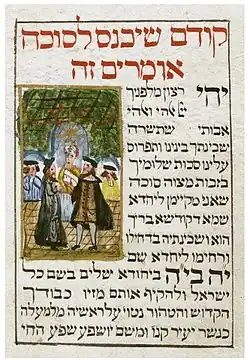 קודם שיכנס לסוכה
אומרים זה
יהי רצון מלפניך
ואהי
אבותי שתשרה
שכינתך בינינו ותפרוס
עלינו סכות שלומיך
בזכות מצוה סוכה
שאנו מקיימין ליחדא
שמא דקודשא בריך
הוא ושכינתיה בדחילו
ורחימו ליחדא שם
יה ביה ביחודא שלים בשם כל
ישראל ולהקיף אותם מזיו כבודך
הקדוש והטהור נטוי על ראשיה מלמעלה
כנשר יעיר קנו ומשם יושפע שפע החי